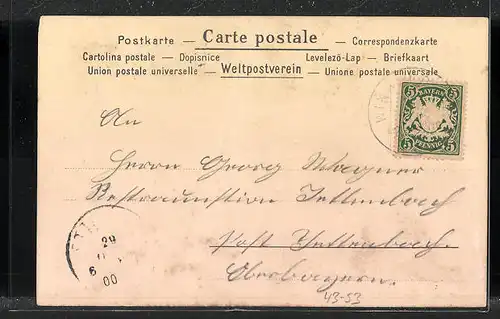 Postkarte — Carte postale — Correspondenzkarte
Cartolina postale — Dopisnice Levelező-Lap — Briefkaart
Union postale universelle — Weltpostverein — Unione postale universale
5 BAYERN 5
5 PFENNIG 5
An
Herrn Georg Wagner
Restauration Jettenbach
Post Jettenbach
Oberbayern.
29
6
00
43-53